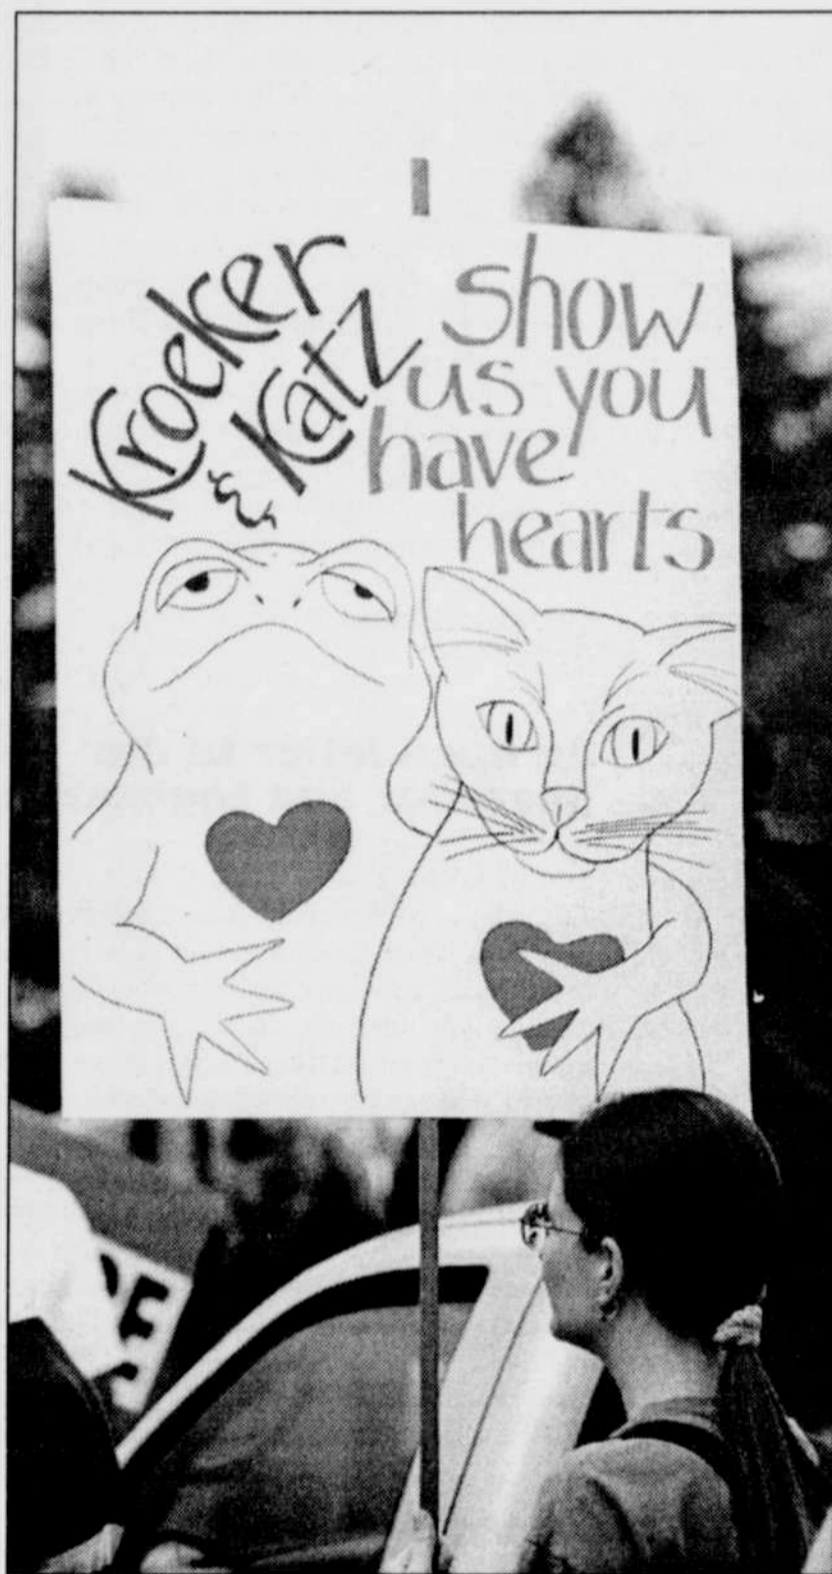 Kroeker
& Katz
show
us you
have
hearts